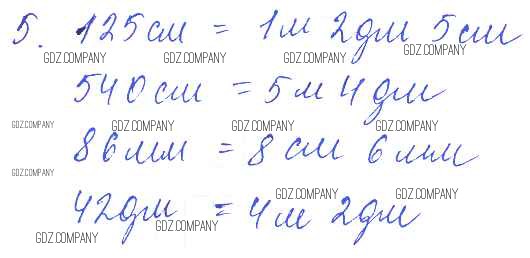 5. 125 см = 1 м 2 дм 5 см
GDZ.COMPANY GDZ.COMPANY GDZ.COMPANY GDZ.COMPANY
540 см = 5 м 4 дм
GDZ.COMPANY GDZ.COMPANY GDZ.COMPANY GDZ.COMPANY
86 мм = 8 см 6 мм
GDZ.COMPANY GDZ.COMPANY GDZ.COMPANY
42 дм = 4 м 2 дм
GDZ.COMPANY GDZ.COMPANY